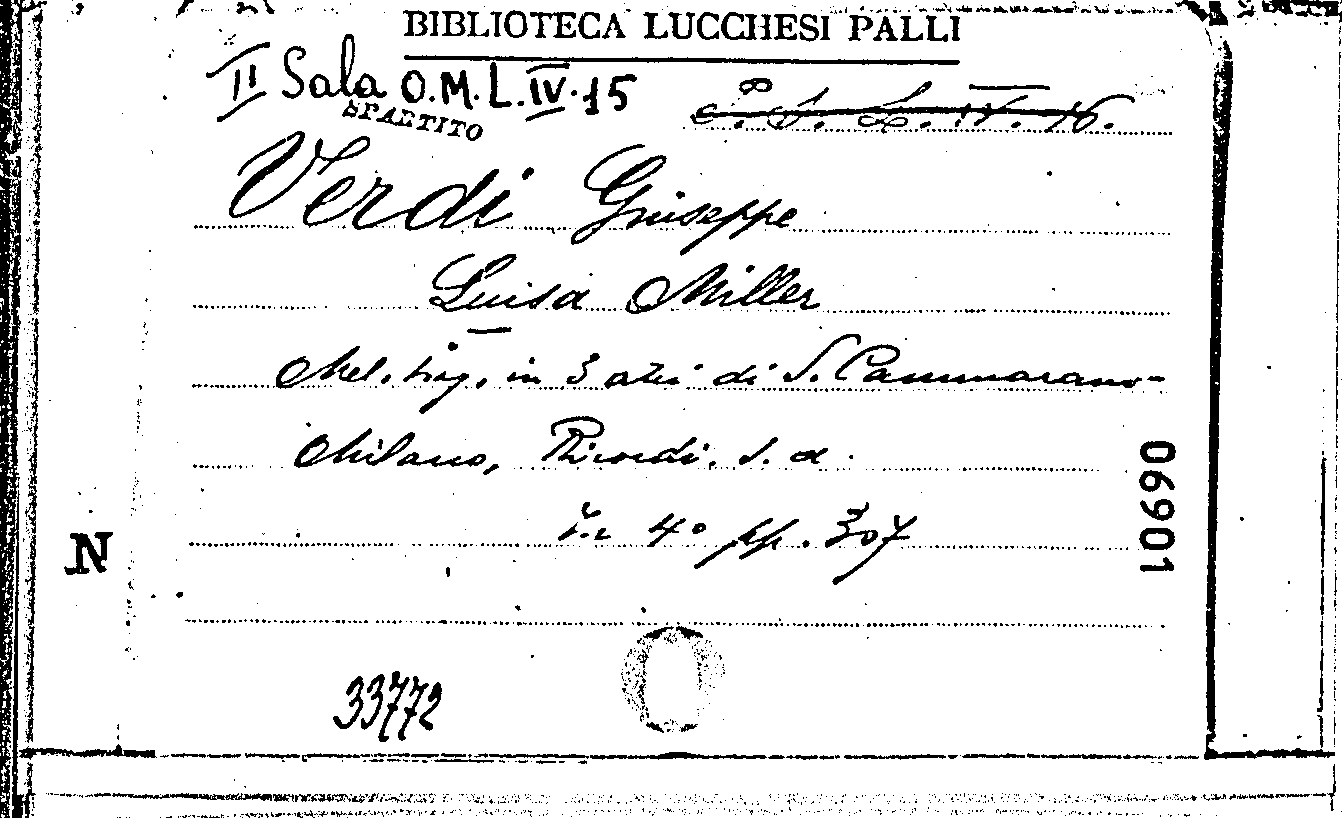 BIBLIOTECA LUCCHESI PALLI
II Sala O.M.L.IV.15
SPARTITO
L. IV. 16.
Verdi Giuseppe
Luisa Miller
Mel. trag. in 3 atti di S. Cammarano-
Milano, Ricordi. s. d.
in 4° pp. 307
N
06901
33772